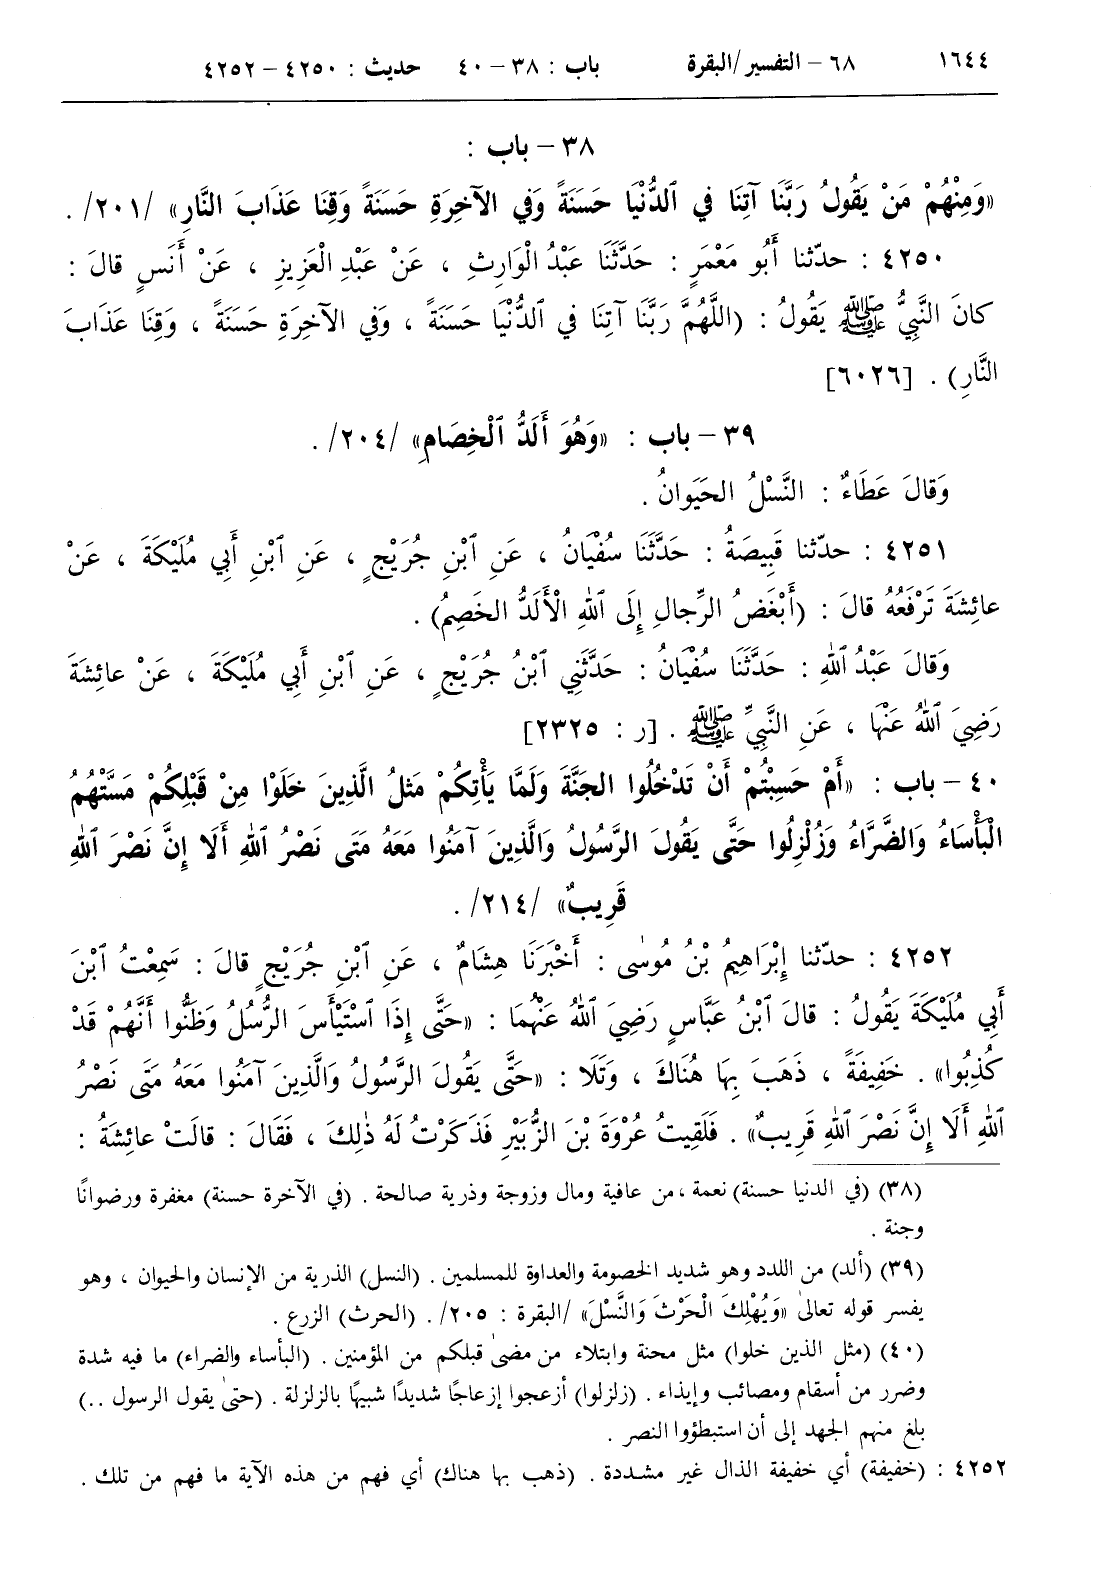 ١٦٤٤ ٦٨ - التفسير/البقرة باب : ٣٨ - ٤٠ حديث : ٤٢٥٠ - ٤٢٥٢
٣٨ - باب :
«وَمِنْهُمْ مَنْ يَقُولُ رَبَّنَا آتِنَا في ٱلدُّنْيَا حَسَنَةً وَفي الآخِرَةِ حَسَنَةً وَقِنَا عَذَابَ النَّارِ» /٢٠١/ .
٤٢٥٠ : حدّثنا أَبُو مَعْمَرٍ : حَدَّثَنَا عَبْدُ الْوَارِثِ ، عَنْ عَبْدِ الْعَزِيزِ ، عَنْ أَنَسٍ قالَ :
كانَ النَّبِيُّ ﷺ يَقُولُ : (اللَّهُمَّ رَبَّنَا آتِنَا في ٱلدُّنْيَا حَسَنَةً ، وَفي الآخِرَةِ حَسَنَةً ، وَقِنَا عَذَابَ
النَّارِ) . [٦٠٢٦]
٣٩ - باب : «وَهُوَ أَلَدُّ ٱلْخِصَامِ» /٢٠٤/ .
وَقالَ عَطَاءٌ : النَّسْلُ الحَيَوانُ .
٤٢٥١ : حدّثنا قَبِيصَةُ : حَدَّثَنَا سُفْيَانُ ، عَنِ ٱبْنِ جُرَيْجٍ ، عَنِ ٱبْنِ أَبِي مُلَيْكَةَ ، عَنْ
عائِشَةَ تَرْفَعُهُ قالَ : (أَبْغَضُ الرِّجالِ إِلَى ٱللهِ الْأَلَدُّ الخَصِمُ) .
وَقالَ عَبْدُ ٱللهِ : حَدَّثَنَا سُفْيَانُ : حَدَّثَنِي ٱبْنُ جُرَيْجٍ ، عَنِ ٱبْنِ أَبِي مُلَيْكَةَ ، عَنْ عائِشَةَ
رَضِيَ ٱللهُ عَنْهَا ، عَنِ النَّبِيِّ ﷺ . [ر : ٢٣٢٥]
٤٠ - باب : «أَمْ حَسِبْتُمْ أَنْ تَدْخُلُوا الجَنَّةَ وَلَمَّا يَأْتِكُمْ مَثلُ الَّذِينَ خَلَوْا مِنْ قَبْلِكُمْ مَسَّتْهُمُ
الْبَأْسَاءُ وَالضَّرَّاءُ وَزُلْزِلُوا حَتَّى يَقُولَ الرَّسُولُ وَالَّذِينَ آمَنُوا مَعَهُ مَتَى نَصْرُ ٱللهِ أَلَا إِنَّ نَصْرَ ٱللهِ
قَرِيبٌ» /٢١٤/ .
٤٢٥٢ : حدّثنا إِبْرَاهِيمُ بْنُ مُوسٰى : أَخْبَرَنَا هِشَامٌ ، عَنِ ٱبْنِ جُرَيْجٍ قالَ : سَمِعْتُ ٱبْنَ
أَبِي مُلَيْكَةَ يَقُولُ : قالَ ٱبْنُ عَبَّاسٍ رَضِيَ ٱللهُ عَنْهُمَا : «حَتَّى إِذَا ٱسْتَيْأَسَ الرُّسُلُ وَظَنُّوا أَنَّهُمْ قَدْ
كُذِبُوا» . خَفِيفَةً ، ذَهَبَ بِهَا هُنَاكَ ، وَتَلَا : «حَتَّى يَقُولَ الرَّسُولُ وَالَّذِينَ آمَنُوا مَعَهُ مَتَى نَصْرُ
ٱللهِ أَلَا إِنَّ نَصْرَ ٱللهِ قَرِيبٌ» . فَلَقِيتُ عُرْوَةَ بْنَ الزُّبَيْرِ فَذَكَرْتُ لَهُ ذٰلِكَ ، فَقَالَ : قالَتْ عائِشَةُ :
(٣٨) (في الدنيا حسنة) نعمة ، من عافية ومال وزوجة وذرية صالحة . (في الآخرة حسنة) مغفرة ورضوانًا
وجنة .
(٣٩) (ألد) من اللدد وهو شديد الخصومة والعداوة للمسلمين . (النسل) الذرية من الإنسان والحيوان ، وهو
يفسر قوله تعالىٰ «وَيُهْلِكَ الْحَرْثَ وَالنَّسْلَ» /البقرة : ٢٠٥/ . (الحرث) الزرع .
(٤٠) (مثل الذين خلوا) مثل محنة وابتلاء من مضىٰ قبلكم من المؤمنين . (البأساء والضراء) ما فيه شدة
وضرر من أسقام ومصائب وإيذاء . (زلزلوا) أزعجوا إزعاجًا شديدًا شبيهًا بالزلزلة . (حتىٰ يقول الرسول ..)
بلغ منهم الجهد إلى أن استبطؤوا النصر .
٤٢٥٢ : (خفيفة) أي خفيفة الذال غير مشددة . (ذهب بها هناك) أي فهم من هذه الآية ما فهم من تلك .